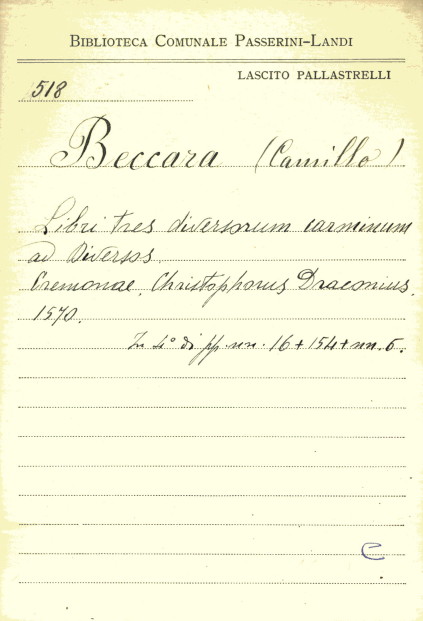 BIBLIOTECA COMUNALE PASSERINI-LANDI
LASCITO PALLASTRELLI
518
Beccara (Camillo)
Libri tres diversorum carminum
ad Diversos.
Cremonae, Christophorus Draconius,
1570.
In 4° di pp. nn. 16 + 154 + nn. 6.
C